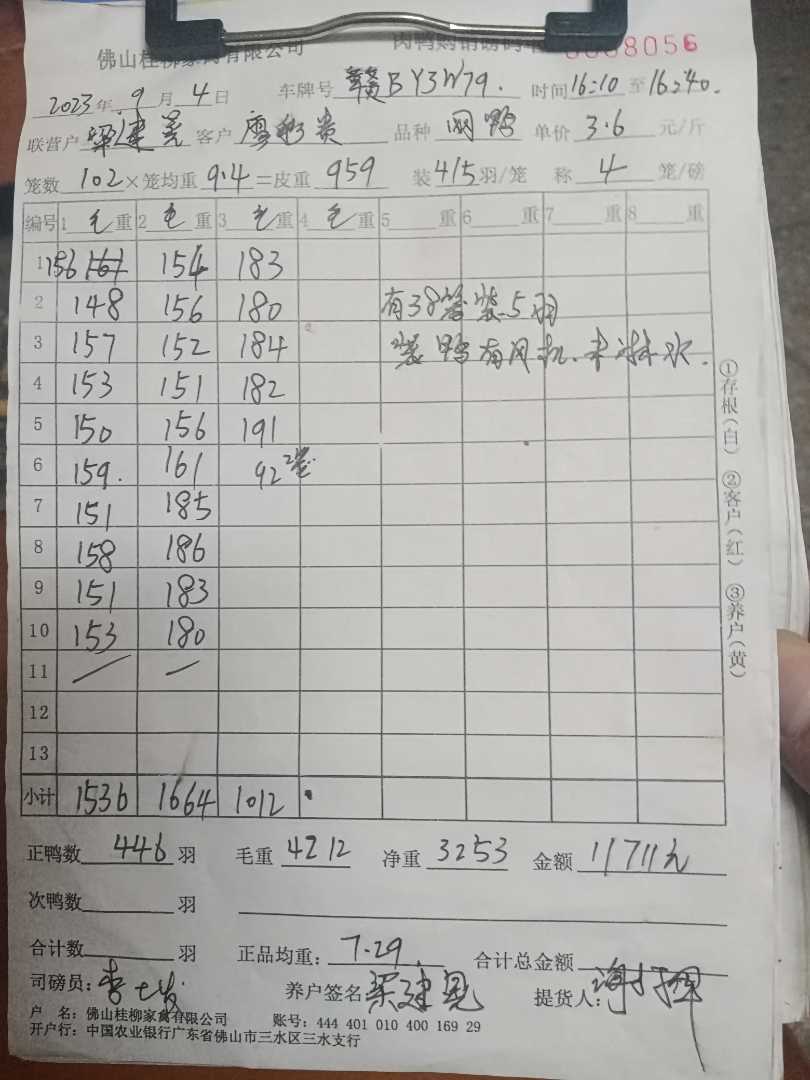 佛山桂柳家禽有限公司 肉鸭购销磅码单 0008056
2023年 9月 4日 车牌号 赣BY3W79. 时间16:10至16:40.
联营户 梁建晃 客户 廖彩贵 品种 网鸭 单价 3.6 元/斤
笼数 102×笼均重9.4=皮重 959 装4/5羽/笼 称 4 笼/磅
编号 1毛重 2毛重 3毛重 4毛重 5重 6重 7重 8重
1 156 161 154 183
2 148 156 180 有38笼装5羽
3 157 152 184 装鸭有风机.未淋水.
4 153 151 182
5 150 156 191
6 159. 161 92 2笼
7 151 185
8 158 186
9 151 183
10 153 180
11 / —
12
13
小计 1536 1664 1012
正鸭数 446 羽 毛重 4212 净重 3253 金额 11711元
次鸭数 羽
合计数 羽 正品均重: 7.29 合计总金额
司磅员: 养户签名 梁建晃 提货人:
户 名: 佛山桂柳家禽有限公司 账号: 444 401 010 400 169 29
开户行: 中国农业银行广东省佛山市三水区三水支行
①存根(白) ②客户(红) ③养户(黄)